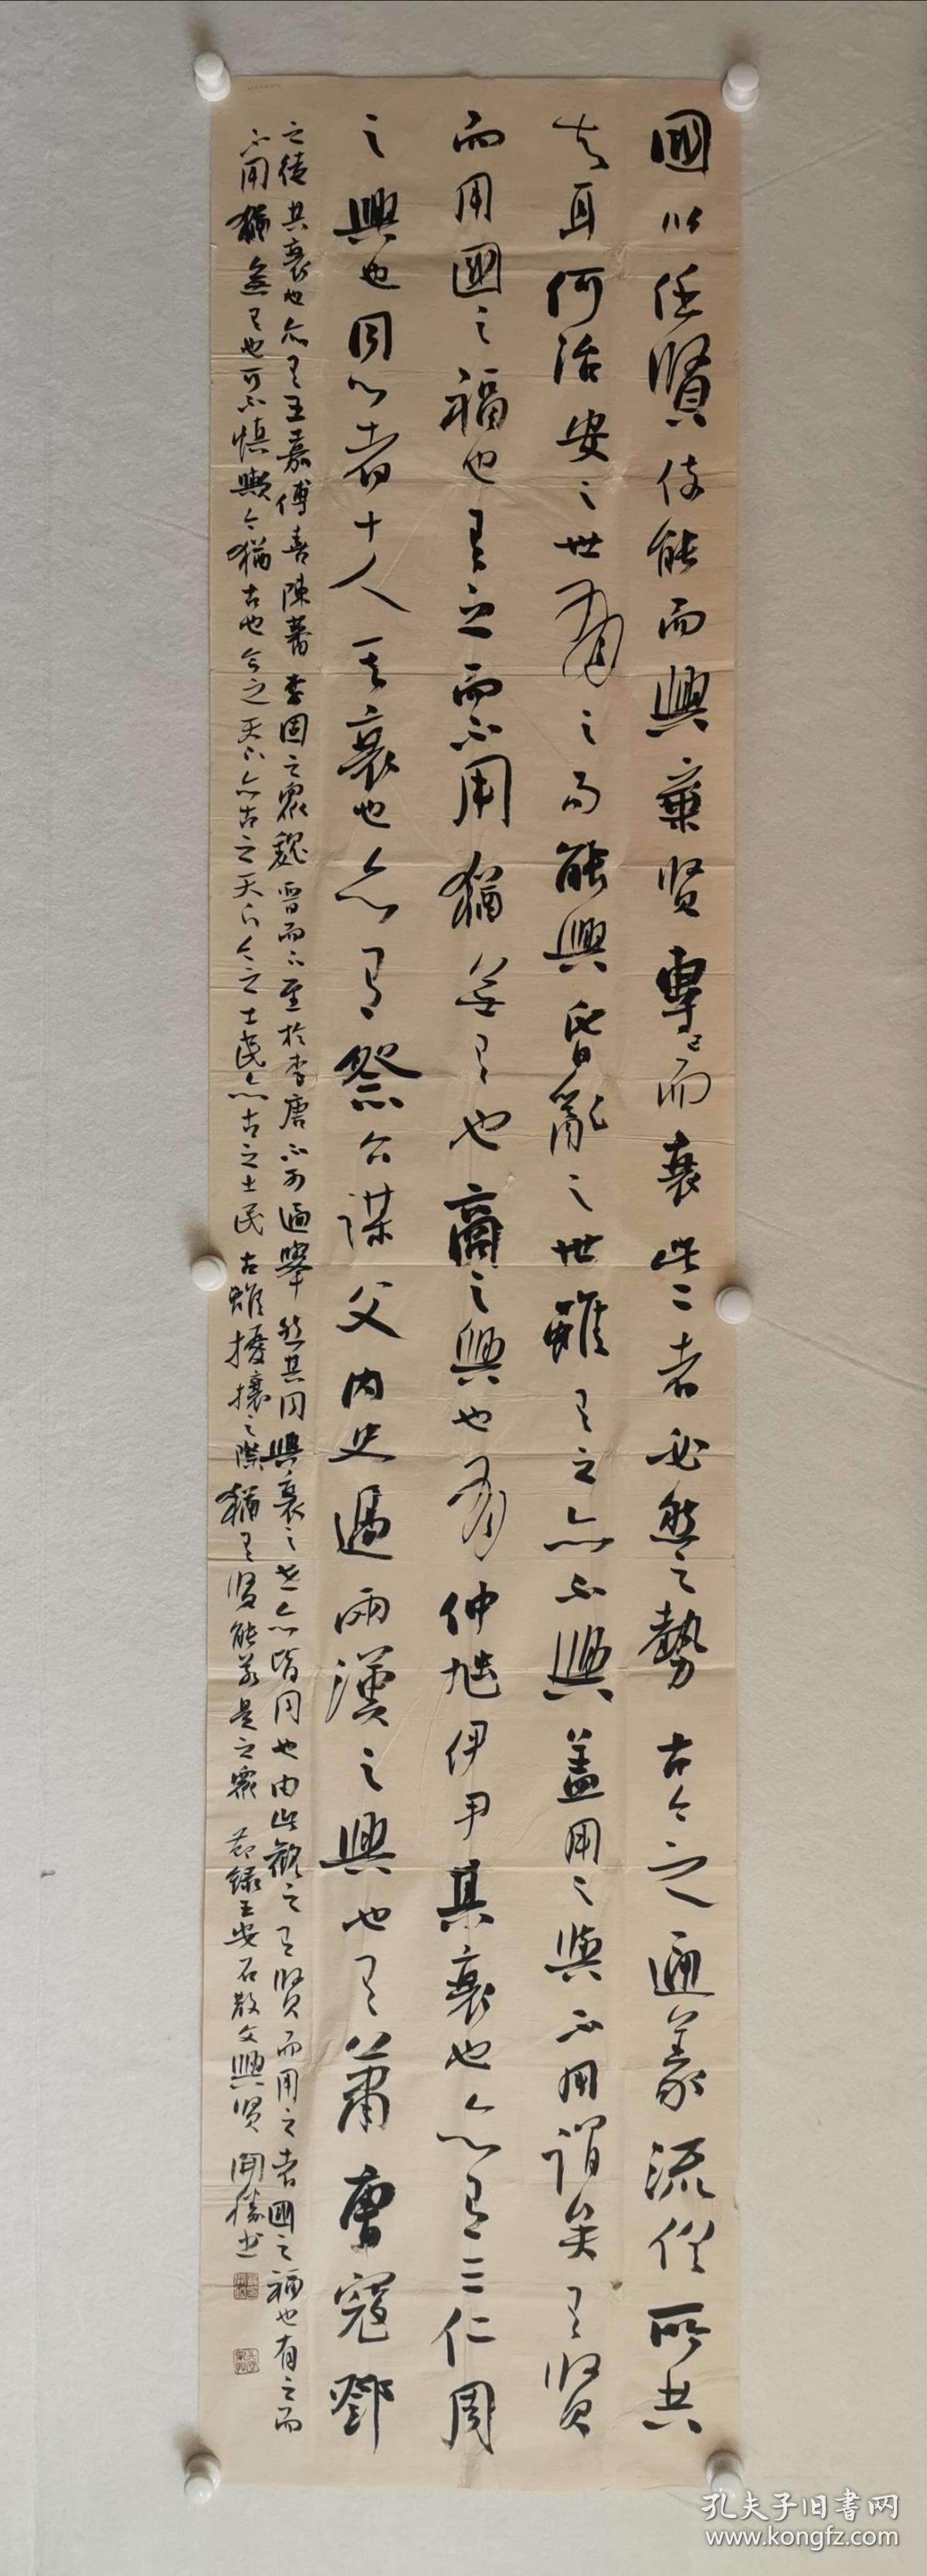 國以任賢使能而興棄賢專己而衰此二者必然之勢古今之通義流俗所共
知耳何治安之世有之而能興昏亂之世雖有之亦不興蓋用之與不用謂矣有賢
而用國之福也有之而不用猶無有也商之興也有仲虺伊尹其衰也亦有三仁周
之興也同心者十人其衰也亦有祭公謀父內史過兩漢之興也有蕭曹寇鄧
之徒其衰也亦有王嘉傅喜陳蕃李固之眾魏晉而下至於李唐不可遍舉然其間興衰之世亦皆同也由此觀之有賢而用之者國之福也有之而
不用猶無有也可不慎歟今猶古也今之天下亦古之天下今之士民亦古之士民古雖擾攘之際猶有賢能若是之眾 節錄王安石散文興賢 開勝书
孔夫子旧書网
www.kongfz.com